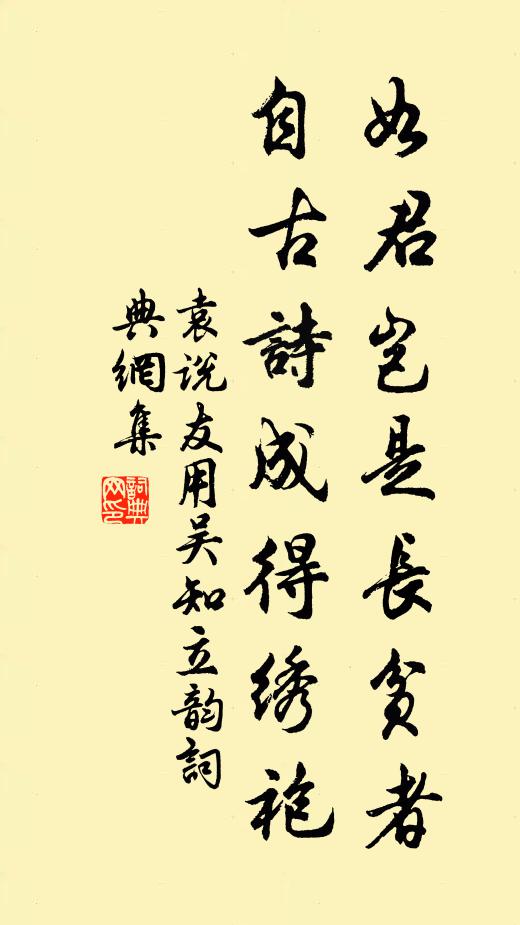 如君岂是長貧者
自古詩成得绣袍
袁说友用吴知立韵詞
典網集
詞典网印